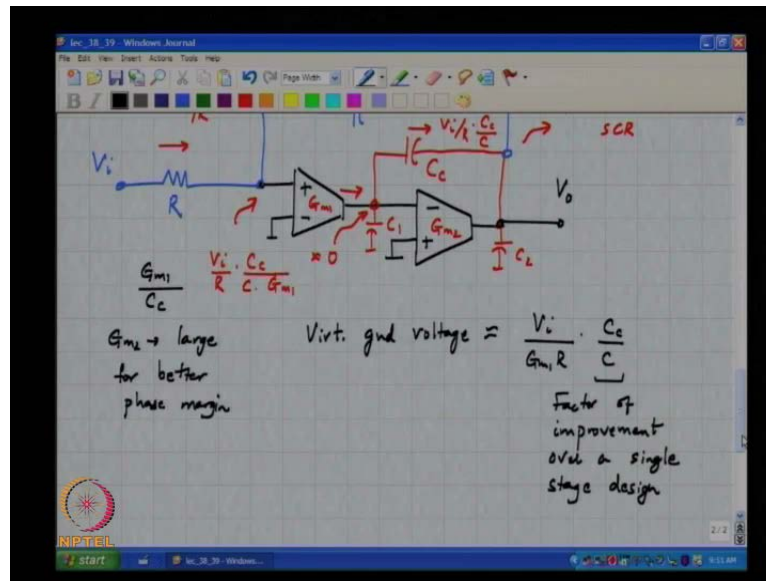 lec_38_39 - Windows Journal
File Edit View Insert Actions Tools Help
Page Width
B I
R
Vi/R · Cc/C
SCR
Vi
Cc
Vo
R
+
-
Gm1
-
+
Gm2
C1
C2
≈ 0
Gm1/Cc
Vi/R · Cc/(C · Gm1)
Gm2 → large
for better
phase margin
Virt. gnd voltage ≈ Vi/(Gm1 R) · Cc/C
Factor of
improvement
over a single
stage design
2/2
NPTEL
start
lec_38_39 - Windows...
9:51 AM